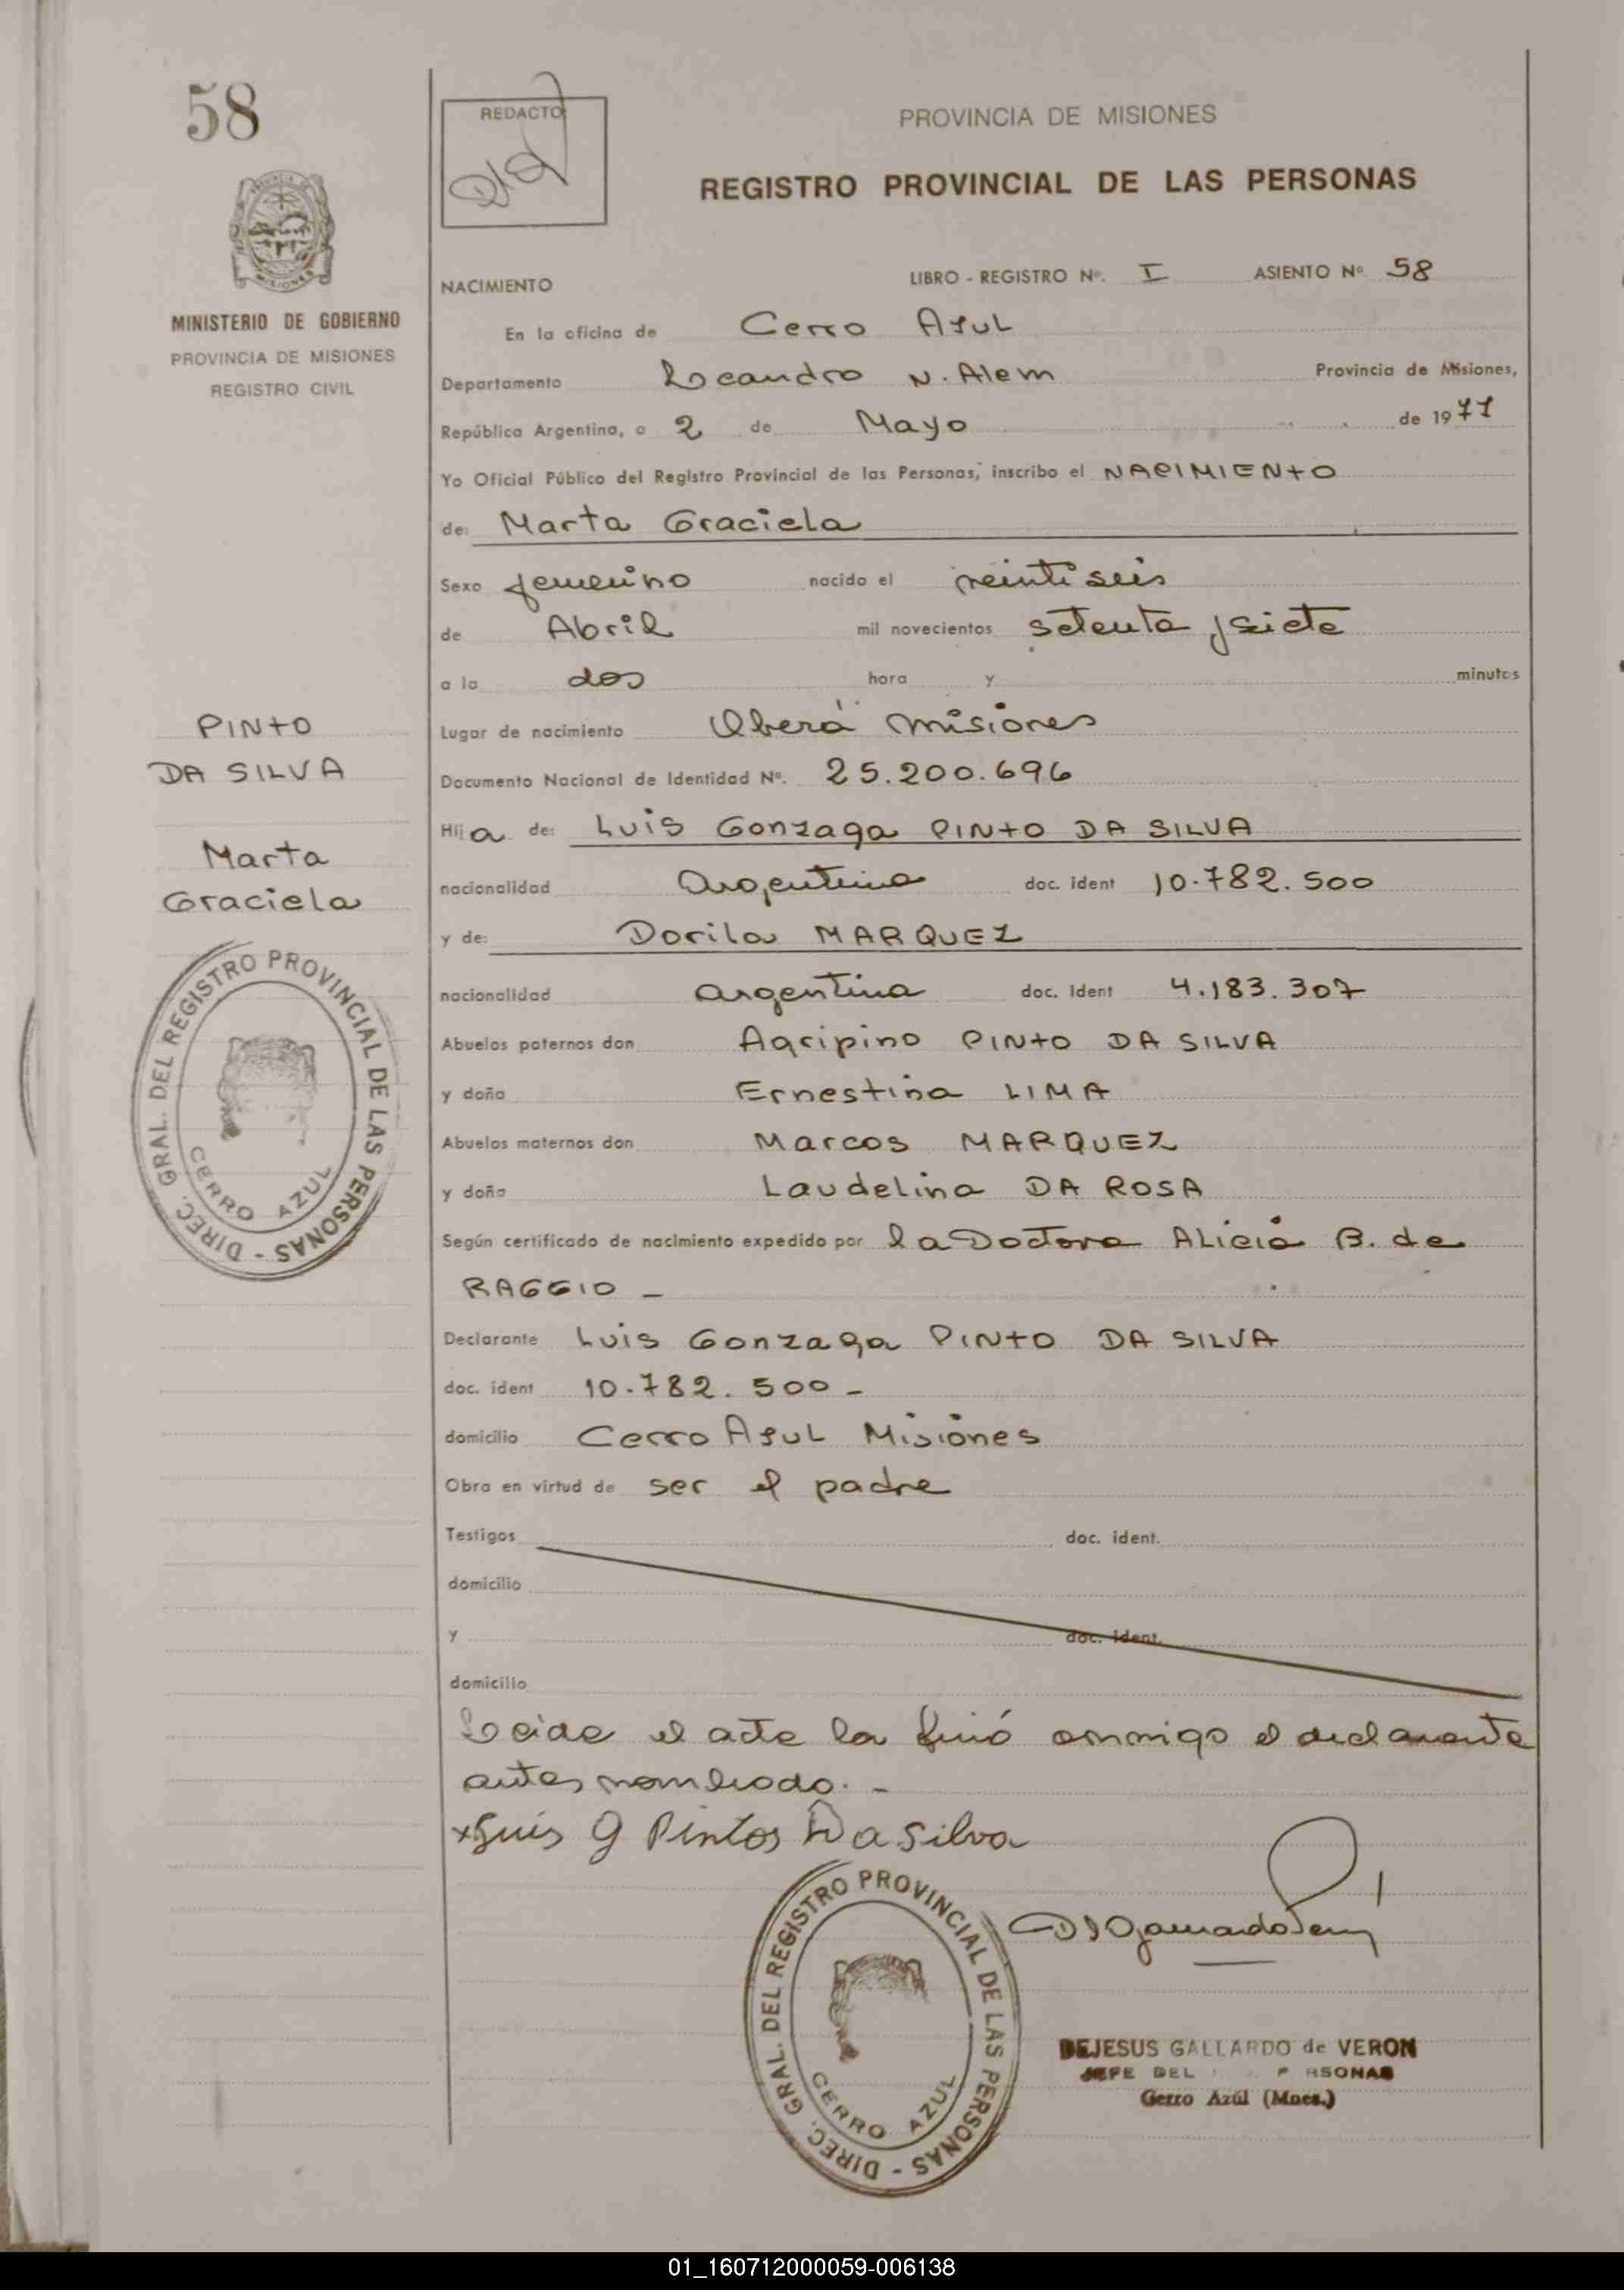 58
REDACTO
PROVINCIA DE MISIONES
REGISTRO PROVINCIAL DE LAS PERSONAS
MINISTERIO DE GOBIERNO
PROVINCIA DE MISIONES
REGISTRO CIVIL
NACIMIENTO
LIBRO - REGISTRO Nº. I ASIENTO Nº 58
En la oficina de Cerro Azul
Departamento Leandro N. Alem Provincia de Misiones,
República Argentina, a 2 de Mayo de 1977
Yo Oficial Público del Registro Provincial de las Personas, inscribo el NACIMIENTO
de: Marta Graciela
Sexo femenino nacido el veintiseis
de Abril mil novecientos setenta y siete
a la dos hora y minutos
Lugar de nacimiento Oberá Misiones
Documento Nacional de Identidad Nº. 25.200.696
Hija de: Luis Gonzaga PINTO DA SILVA
nacionalidad Argentina doc. ident 10.782.500
y de: Dorila MARQUEZ
nacionalidad argentina doc. ident 4.183.307
Abuelos paternos don Agripino PINTO DA SILVA
y doña Ernestina LIMA
Abuelos maternos don Marcos MARQUEZ
y doña Laudelina DA ROSA
Según certificado de nacimiento expedido por la Doctora Alicia B. de
RAGGIO -
Declarante Luis Gonzaga PINTO DA SILVA
doc. ident 10.782.500 -
domicilio Cerro Azul Misiones
Obra en virtud de ser el padre
Testigos doc. ident.
domicilio
y doc. ident.
domicilio
Leida el acta la firmó conmigo el declarante
antes nombrado. -
x Luis G Pintos Da Silva
PINTO
DA SILVA
Marta
Graciela
DIREC. GRAL. DEL REGISTRO PROVINCIAL DE LAS PERSONAS -
CERRO AZUL
DIREC. GRAL. DEL REGISTRO PROVINCIAL DE LAS PERSONAS -
CERRO AZUL
DEJESUS GALLARDO de VERON
JEFE DEL
Cerro Azúl (Mnes.)
01_160712000059-006138